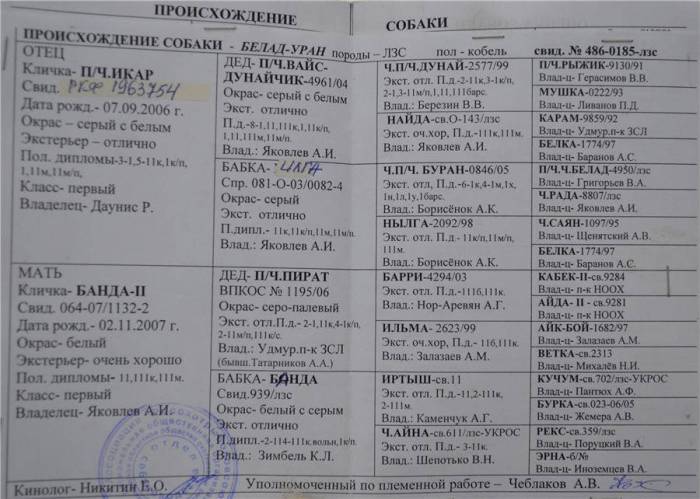 ПРОИСХОЖДЕНИЕ СОБАКИ
ПРОИСХОЖДЕНИЕ СОБАКИ - БЕЛАД-УРАН породы – ЛЗС пол - кобель свид. № 486-0185-лзс
ОТЕЦ
Кличка- П/Ч.ИКАР
Свид. РКФ 1963754
Дата рожд.- 07.09.2006 г.
Окрас – серый с белым
Экстерьер – отлично
Пол. дипломы-3-1,5-11к,1к/п,
1,11м,11м/п,
Класс- первый
Владелец- Даунис Р.
ДЕД- П/Ч.ВАЙС-
ДУНАЙЧИК-4961/04
Окрас- серый с белым
Экст. отлично
П.д.-8-1,11,111к,1к/п,
1,11,111м,11м/п.
Влад.: Яковлев А.И.
БАБКА- ИНГА
Спр. 081-О-03/0082-4
Окрас- серый
Экст. отлично
П.дипл.- 11к,11к/п,11м,11м/п.
Влад.: Яковлев А.И.
Ч.П/Ч.ДУНАЙ-2577/99
Экст. отл. П.д.-2-11к,3-1к/п,
2-1,3-11м/п,1,11,111барс.
Влад.: Березин В.В.
НАЙДА-св.О-143/лзс
Экст. оч.хор, П.д.-111к,111м.
Влад.: Яковлев А.И.
Ч.П/Ч. БУРАН-0846/05
Экст. отл, П.д.-6-1к,4-1м,1х,
1н,1л,1у,1барс.
Влад.: Борисёнок А.К.
НЫЛГА-2092/98
Экст. отл. П.д.- 11к/п,11м/п,
111м.
Влад.: Борисёнок А.К.
П/Ч.РЫЖИК-9130/91
Влад-ц- Герасимов В.В.
МУШКА-0222/93
Влад-ц- Ливанов П.Д.
КАРАМ-9859/92
Влад-ц- Удмур.п-к ЗСЛ
БЕЛКА-1774/97
Влад-ц- Баранов А.С.
П/Ч.Ч.БЕЛАД-4950/лзс
Влад-ц- Григорьев В.А.
Ч.РАДА-8807/лзс
Влад-ц- Яковлев А.И.
Ч.САЯН-1097/95
Влад-ц- Щенятский А.В.
БЕЛКА-1774/97
Влад-ц- Баранов А.С.
МАТЬ
Кличка- БАНДА-II
Свид. 064-07/1132-2
Дата рожд.- 02.11.2007 г.
Окрас- белый
Экстерьер- очень хорошо
Пол. дипломы- 11,111к,111м.
Класс- первый
Владелец- Яковлев А.И.
ДЕД- П/Ч.ПИРАТ
ВПКОС № 1195/06
Окрас- серо-палевый
Экст. отл.П.д.- 2-1,11к,4-1к/п,
2-11м/п,11к/с.
Влад.: Удмур.п-к ЗСЛ
(бывш.Татарников А.А.)
БАБКА- БАНДА
Свид.939/лзс
Окрас- белый с серым
Экст. отлично
П.дипл.-2-114-111к.вольн,1к/п.
Влад.: Зимбель К.Л.
БАРРИ-4294/03
Экст. отл, П.д.-1116,111к.
Влад.: Нор-Аревян А.Г.
ИЛЬМА- 2623/99
Экст. отл, П.д.- 116,111к.
Влад.: Залазаев А.М.
ИРТЫШ-св.11
Экст. отл, П.д.-11,2-11к,
2-111м.
Влад.: Каменчук А.Г.
Ч.АЙНА-св.611/лзс-УКРОС
Экст. отл, П.д.- 3-11к.
Влад.: Шепотько В.Н.
КАБЕК-II-св.9284
Влад-ц- п-к НООХ
АЙДА- II - св.9281
Влад-ц- п-к НООХ
АЙК-БОЙ-1682/97
Влад-ц- Залазаев А.М.
ВЕТКА-св.2313
Влад-ц- Михалёв Н.И.
КУЧУМ-св.702/лзс-УКРОС
Влад-ц- Пантюх А.Ф.
БУРКА-св.023-06/05
Влад-ц- Жемера А.В.
РЕКС-св.359/лзс
Влад-ц- Поруцкий В.А.
ЭРНА-б/№
Влад-ц- Иноземцев В.А.
Кинолог- Никитин Е.О. Уполномоченный по племенной работе – Чеблаков А.В.